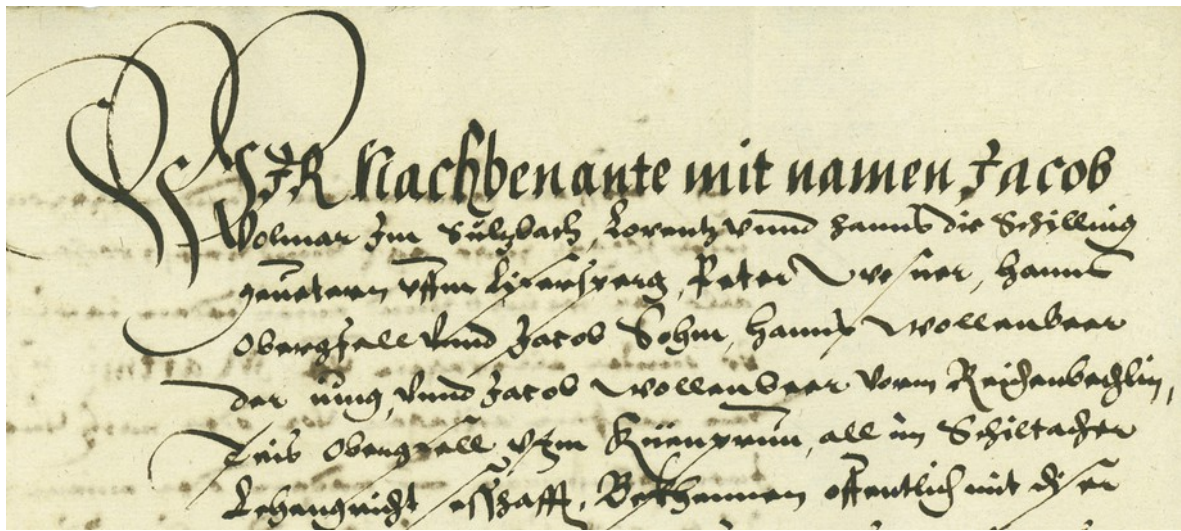 WIR Nachbenante mit namen Jacob
Wolmar Im Sultzbach, Lorentz vnnd Hanns die Schilling
geuetern vffm Liefersperg, Peter Wesner, Hanns
Obergfell vnnd Jacob Sohm, Hanns Wollenbeer
der jung, vnnd Jacob Wollenbeer vorm Reichenbechlin,
Teis Obergfell vffm Kuenprun, all im Schiltacher
Lehengricht sesshafft, Bekhennen offentlich mit diser